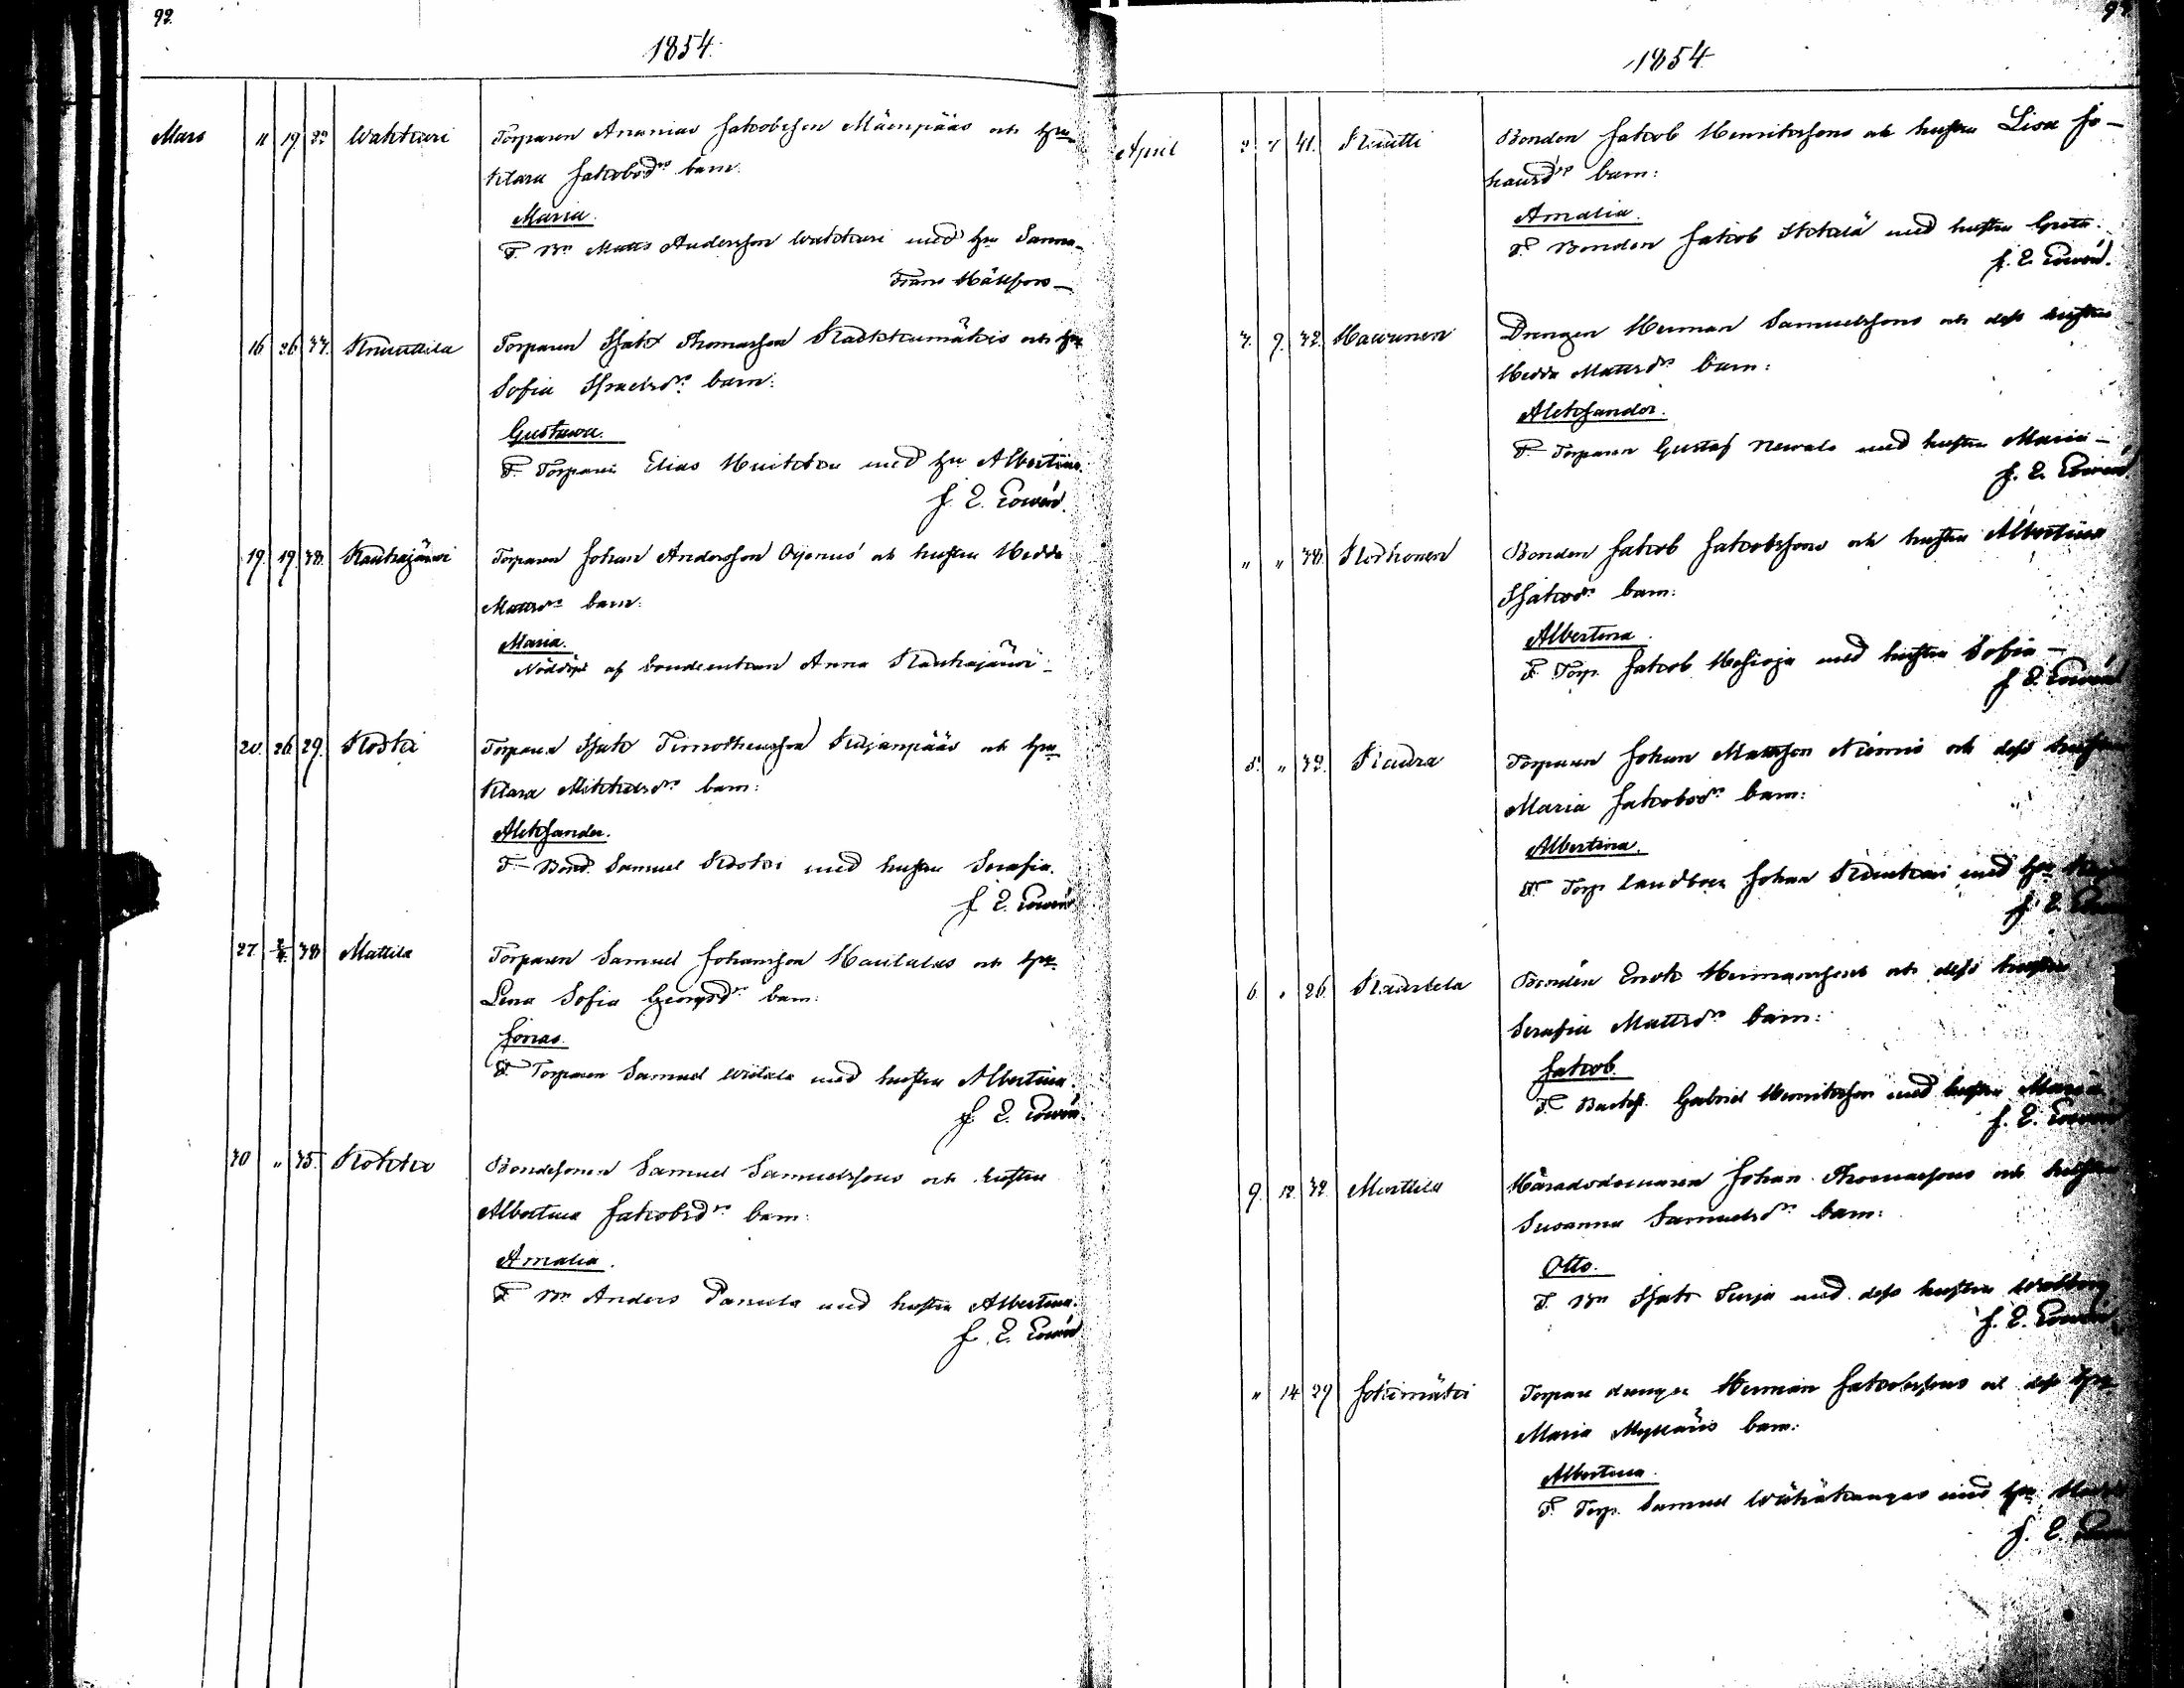 92.
1854.
Mars 11 19. 22 Wahtari Torparen Ananias Jakobsson Mäenpääs och hu
Klara Jakobsdr barn:
Maria.
F. Bn Matts Andersson Wahtari med hu Sanna.
Frans Hällfors
16 26 37. Knuuttila Torparen Isak Thomasson Kackkumäkis och hu
Sofia Israelsdr barn:
Gustawa.
F. Torparen Elias Huikku med hu Albertina.
J. E. Cowén.
19. 19. 38. Kauhajärwi Torparen Johan Andersson och hustru Hedda
Mattsdr barn:
Maria.
Nöddöpt af Anna Kauhajärwi
20. 26. 29. Koski Torparen Isak Timotheusson Kujanpääs och hu
Klara Mikkelsdr barn:
Aleksander.
F. Bond. Samuel Koski med hustru Serafia.
J. E. Cowén
27. 2/4. 38 Mattila Torparen Samuel Johansson Hautalas och hu
Lena Sofia Georgsdr barn:
Jonas.
F. Torparen Samuel Widala med hustru Albertina.
J. E. Cowén.
30 " 35. Kokko Bondesonen Samuel Samuelssons och hustru
Albertina Jakobsdr barn:
Amalia.
F. Bn Anders Panula med hustru Albertina.
J. E. Cowén
1854
April 2 7 41. Knutti Bonden Jakob Henrikssons och hustru Lisa Jo-
hansdr barn:
Amalia.
F. Bonden Jakob Ikkälä med hustru Greta.
J. E. Cowén.
3. 9. 32. Haurunen Drengen Herman Samuelssons och dess hustru
Hedda Mattsdr barn:
Aleksander.
F. Torparen Gustaf Newala med hustru Maria
J. E. Cowén.
" " 38. Korhonen Bonden Jakob Jakobssons och hustru Albertina
Isaksdr barn:
Albertina.
F. Torp. Jakob Hesioja med hustru Sofia
J. E. Cowén
5. " 32. Kaura Torparen Johan Mattsson Niemis och dess hustru
Maria Jakobsdr barn:
Albertina.
F. Torp landboen Johan med hu
J. E.
6. " 26. Kaurula Bonden Erik Hermanssons och dess hustru
Serafia Mattsdr barn:
Jakob.
F. Backst. Gabriel Henriksson med hustru Maria
J. E. Cowén
9. 12. 32. Marttila Häradsdomaren Johan Thomassons och hustru
Susanna Samuelsdr barn:
Otto.
F. Bn Isak Turja med dess hustru Walborg
J. E. Cowén
" 14 29 Jokimäki Torpare drengen Herman Jakobssons och dess hu
Maria barn:
Albertina.
F. Torp. Samuel Wähäkangas med hu
J. E.